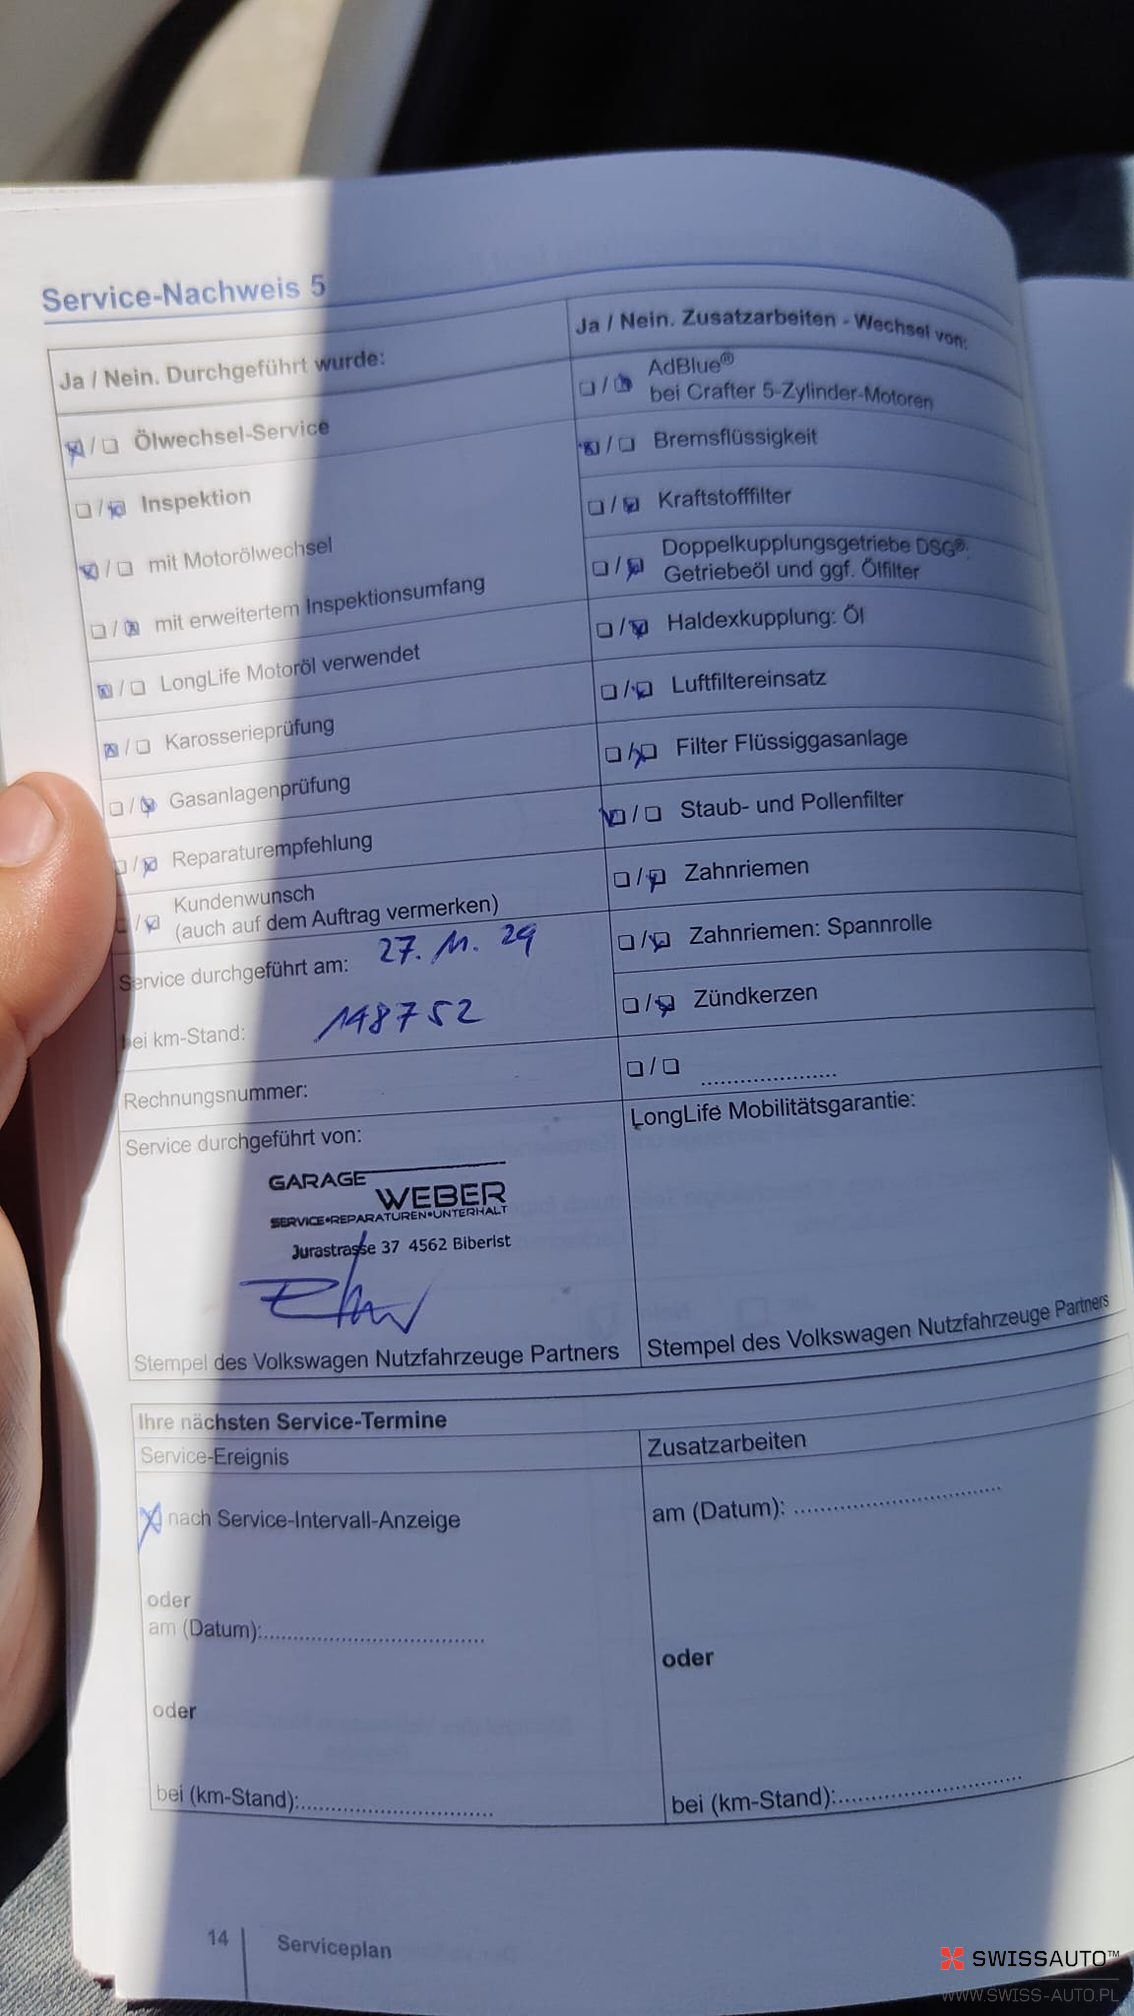 Service-Nachweis 5
Ja / Nein. Durchgeführt wurde:
☒ / ☐ Ölwechsel-Service
☐ / ☒ Inspektion
☒ / ☐ mit Motorölwechsel
☐ / ☒ mit erweitertem Inspektionsumfang
☒ / ☐ LongLife Motoröl verwendet
☒ / ☐ Karosserieprüfung
☐ / ☒ Gasanlagenprüfung
☐ / ☒ Reparaturempfehlung
☐ / ☒ Kundenwunsch
(auch auf dem Auftrag vermerken)
Service durchgeführt am: 27. 11. 24
bei km-Stand: 148752
Rechnungsnummer:
Service durchgeführt von:
GARAGE
WEBER
SERVICE•REPARATUREN•UNTERHALT
Jurastrasse 37 4562 Biberist
Stempel des Volkswagen Nutzfahrzeuge Partners
Ja / Nein. Zusatzarbeiten - Wechsel von:
☐ / ☒ AdBlue®
bei Crafter 5-Zylinder-Motoren
☒ / ☐ Bremsflüssigkeit
☐ / ☒ Kraftstofffilter
☐ / ☒ Doppelkupplungsgetriebe DSG®:
Getriebeöl und ggf. Ölfilter
☐ / ☒ Haldexkupplung: Öl
☐ / ☒ Luftfiltereinsatz
☐ / ☒ Filter Flüssiggasanlage
☒ / ☐ Staub- und Pollenfilter
☐ / ☒ Zahnriemen
☐ / ☒ Zahnriemen: Spannrolle
☐ / ☒ Zündkerzen
☐ / ☐ .....................
LongLife Mobilitätsgarantie:
Stempel des Volkswagen Nutzfahrzeuge Partners
Ihre nächsten Service-Termine
Service-Ereignis
☒ nach Service-Intervall-Anzeige
oder
am (Datum):....................................
oder
bei (km-Stand):...............................
Zusatzarbeiten
am (Datum): .................................
oder
bei (km-Stand):.............................
14 Serviceplan
SWISSAUTO™
WWW.SWISS-AUTO.PL